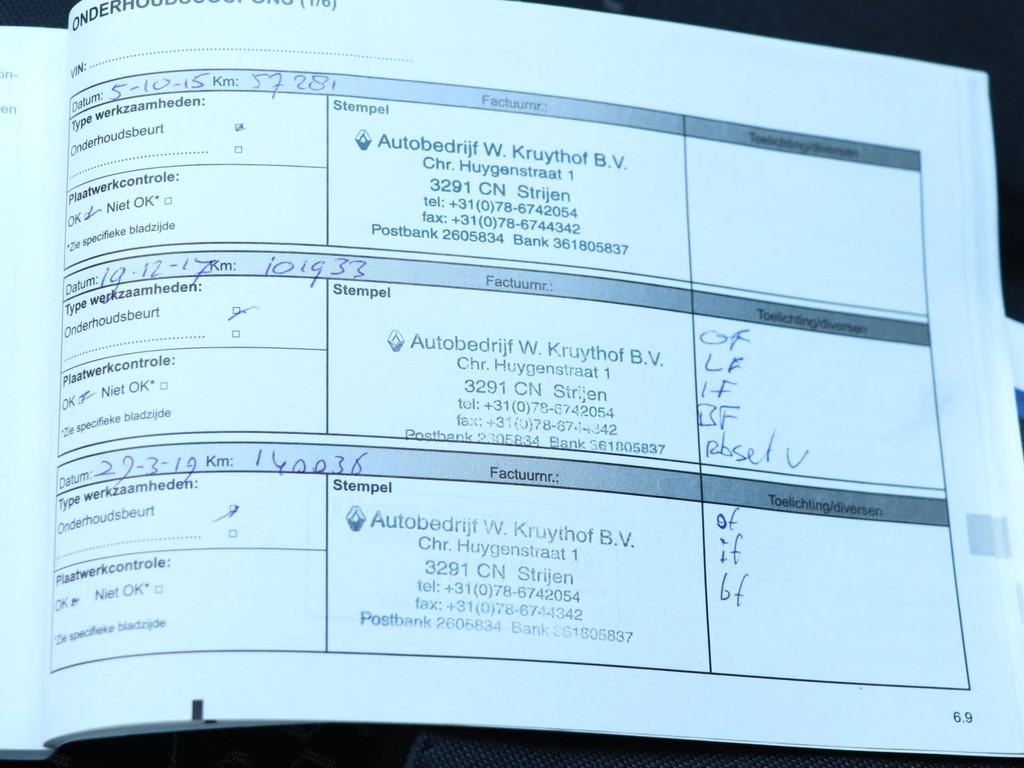 ONDERHOUDSCOUPONS (1/6)
VIN:
Datum: 5-10-15 Km: 57281 Factuurnr.:
Type werkzaamheden:
Onderhoudsbeurt
Plaatwerkcontrole:
OK Niet OK*
*Zie specifieke bladzijde
Stempel
Autobedrijf W. Kruythof B.V.
Chr. Huygenstraat 1
3291 CN Strijen
tel: +31(0)78-6742054
fax: +31(0)78-6744342
Postbank 2605834 Bank 361805837
Toelichting/diversen
Datum: 19-12-17 Km: 101933 Factuurnr.:
Type werkzaamheden:
Onderhoudsbeurt
Plaatwerkcontrole:
OK Niet OK*
*Zie specifieke bladzijde
Stempel
Autobedrijf W. Kruythof B.V.
Chr. Huygenstraat 1
3291 CN Strijen
tel: +31(0)78-6742054
fax: +31(0)78-6744342
Postbank 2605834 Bank 361805837
Toelichting/diversen
OF
LF
IF
BF
Rbset V
Datum: 29-3-19 Km: 140036 Factuurnr.:
Type werkzaamheden:
Onderhoudsbeurt
Plaatwerkcontrole:
OK Niet OK*
*Zie specifieke bladzijde
Stempel
Autobedrijf W. Kruythof B.V.
Chr. Huygenstraat 1
3291 CN Strijen
tel: +31(0)78-6742054
fax: +31(0)78-6744342
Postbank 2605834 Bank 361805837
Toelichting/diversen
of
if
bf
6.9